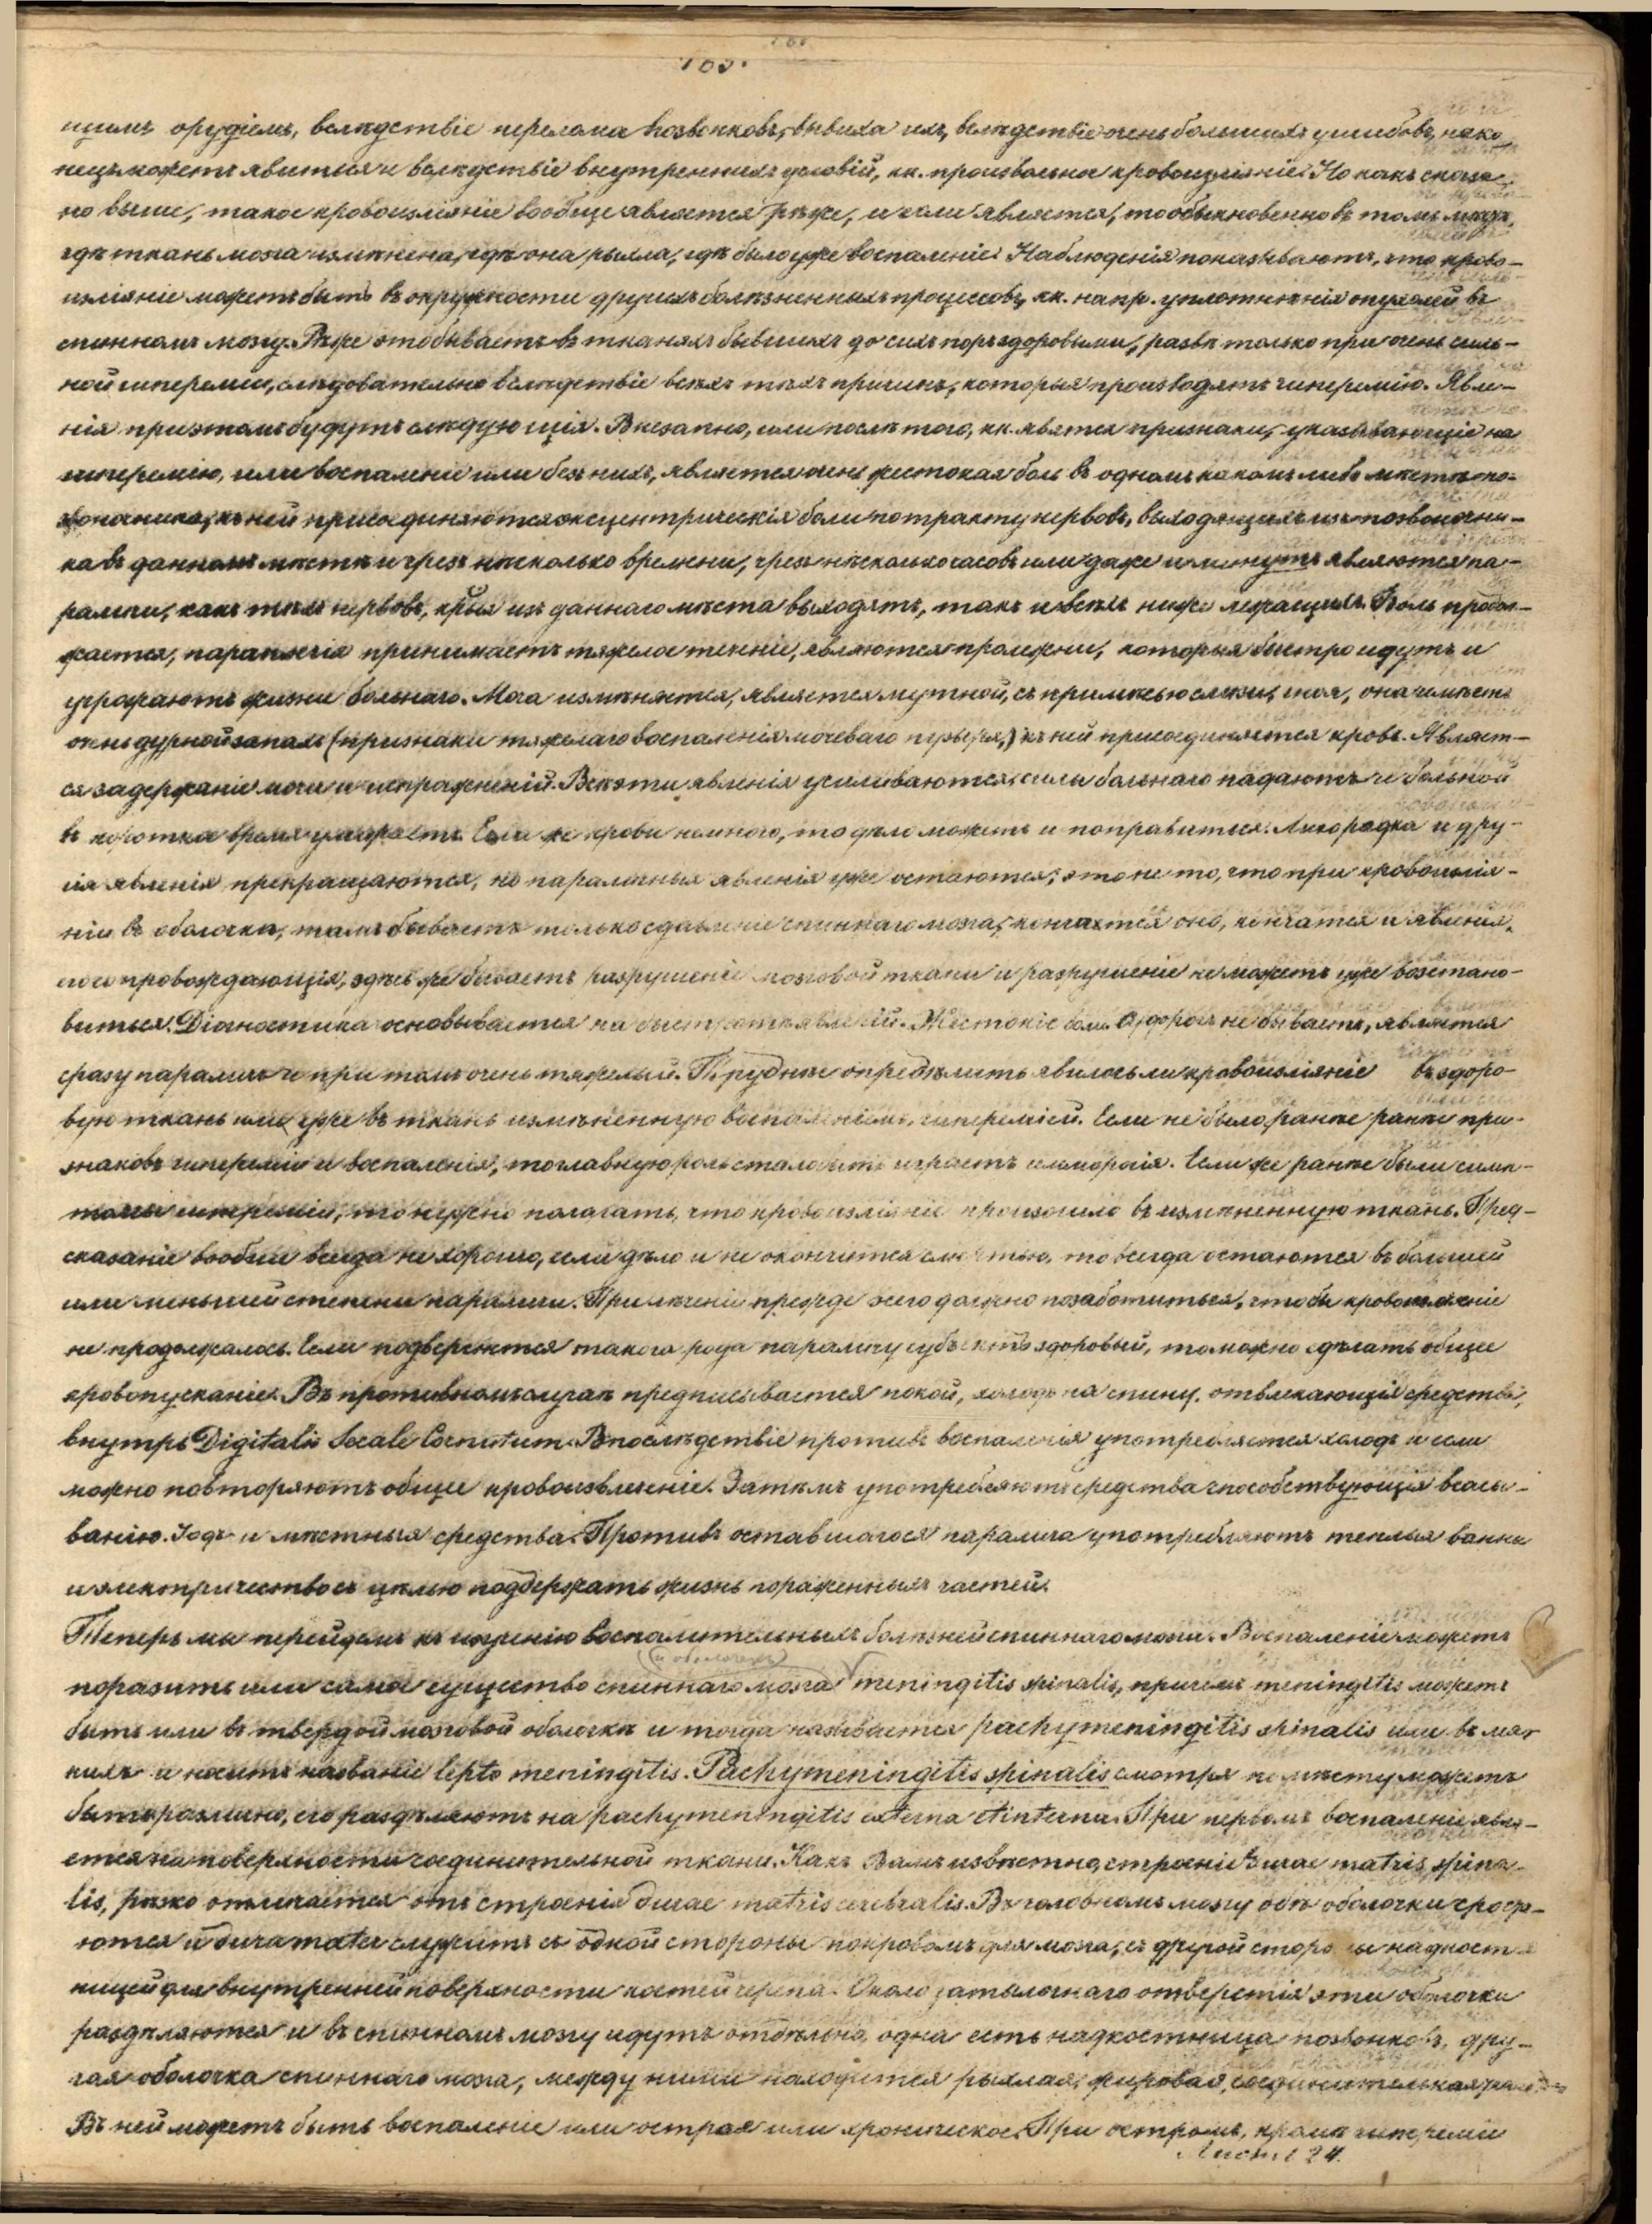 щимъ орудіемъ, вслѣдствіе перелома позвонковъ, вывиха ихъ, вслѣдствіе очень большихъ ушибовъ, нако
нецъ можетъ явиться и вслѣдствіе внутреннихъ условій, кк. произвольное кровоизліяніе. Но какъ сказа
но выше, такое кровоизліяніе вообще является рѣже, и если является, то обыкновенно въ томъ мѣстѣ,
гдѣ ткань мозга измѣнена, гдѣ она рыхла, гдѣ было уже воспаленіе. Наблюденія показываютъ, что крово-
изліяніе можетъ быть въ окружности другихъ болѣзненныхъ процессовъ, кк. напр. уплотнѣнія опухолей въ
спинномъ мозгу. Рѣже это бываетъ въ тканяхъ бывшихъ до сихъ поръ здоровыми, развѣ только при очень силь-
ной гипереміи, слѣдовательно вслѣдствіе всѣхъ тѣхъ причинъ, которыя производятъ гиперемію. Явле-
нія при этомъ будутъ слѣдующія. Внезапно, или послѣ того, кк. явятся признаки, указывающіе на
гиперемію, или воспаленіе или безъ нихъ, является очень жестокая боль въ одномъ какомъ либо мѣстѣ по-
звоночника, къ ней присоединяются эксцентрическія боли по тракту нервовъ, выходящихъ изъ позвоночни-
ка въ данномъ мѣстѣ и чрезъ нѣсколько времени, чрезъ нѣсколько часовъ или даже и минутъ являются па-
раличи, какъ тѣхъ нервовъ, крыя изъ даннаго мѣста выходятъ, такъ и всѣхъ ниже лежащихъ. Боль продол-
жается, параплегія принимаетъ тяжелое теченіе, являются пролежни, которыя быстро идутъ и
угрожаютъ жизни больнаго. Моча измѣняется, является мутной, съ примѣсью слизи, гноя, она имѣетъ
очень дурной запахъ (признаки тяжелаго воспаленія мочеваго пузыря,) къ ней присоединяется кровь. Являет-
ся задержаніе мочи и испражненій. Всѣ эти явленія усиливаются, силы больнаго падаютъ и больной
въ короткое время умираетъ. Если же крови немного, то дѣло можетъ и поправиться. Лихорадка и дру-
гія явленія прекращаются, но параличныя явленія уже остаются; это не то, что при кровоизлія-
ніи въ оболочки, тамъ бываетъ только сдавленіе спиннаго мозга, кончается оно, кончатся и явленія,
его сопровождающія, здѣсь же бываетъ разрушеніе мозговой ткани и разрушеніе не можетъ уже возстано-
виться. Діагностика основывается на быстротѣ явленій. Жестокіе боли. Судорогъ не бываетъ, является
сразу параличъ и при томъ очень тяжелый. Труднѣе опредѣлить явилось ли кровоизліяніе въ здоро-
вую ткань или уже въ ткань измѣненную воспаленіемъ, гипереміей. Если не было ранѣе ранѣе при-
знаковъ гипереміи и воспаленія, то главную роль стало быть играетъ гемморогія. Если же ранѣе были симп-
томы гипереміи, то нужно полагать, что кровоизліяніе произошло въ измѣненную ткань. Пред-
сказаніе вообще всегда не хорошо, если дѣло и не окончится смертью, то всегда остаются въ большей
или меньшей степени параличи. При лѣченіи прежде всего должно позаботиться, чтобы кровоизліяніе
не продолжалось. Если подвергнется такого рода параличу субъектъ здоровый, то можно сдѣлать общее
кровопусканіе. Въ противномъ случаѣ предписывается покой, холодъ на спину, отвлекающія средства,
внутрь Digitalis Secale Cornutum. Впослѣдствіе противъ воспаленія употребляется холодъ и если
можно повторяютъ общее кровоизвлеченіе. Затѣмъ употребляютъ средства способствующія всасы-
ванію. Іодъ и мѣстныя средства. Противъ оставшагося паралича употребляютъ теплыя ванны
и электричество съ цѣлью поддержать жизнь пораженныхъ частей.
Теперь мы перейдемъ къ изученію воспалительныхъ болѣзней спиннаго мозга. Воспаленіе можетъ
(и оболочекъ)
поразить или самое существо спиннаго мозга meningitis spinalis, причемъ meningitis можетъ
быть или въ твердой мозговой оболочкѣ и тогда называется pachymeningitis spinalis или въ мяг
кихъ и носитъ названіе lepto meningitis. Pachymeningitis spinalis смотря по мѣсту можетъ
быть различно, его раздѣляютъ на pachymeningitis externa et interna. При первомъ воспаленіе явля-
ется на поверхности соединительной ткани. Какъ Вамъ извѣстно, строеніе durae matris spina-
lis, рѣзко отличается отъ строенія durae matris cerebralis. Въ головномъ мозгу обѣ оболочки сроста-
ются и dura mater служитъ съ одной стороны покровомъ для мозга, съ другой стороны надкост
ницей для внутренней поверхности костей черепа. Около затылочнаго отверстія эти оболочки
раздѣляются и въ спинномъ мозгу идутъ отдѣльно, одна есть надкостница позвонковъ, дру-
гая оболочка спиннаго мозга, между ними находится рыхлая, жировая, соединительная ткань
Въ ней можетъ быть воспаленіе или острое или хроническое. При остромъ, кромѣ гипереміи
Листъ 24.